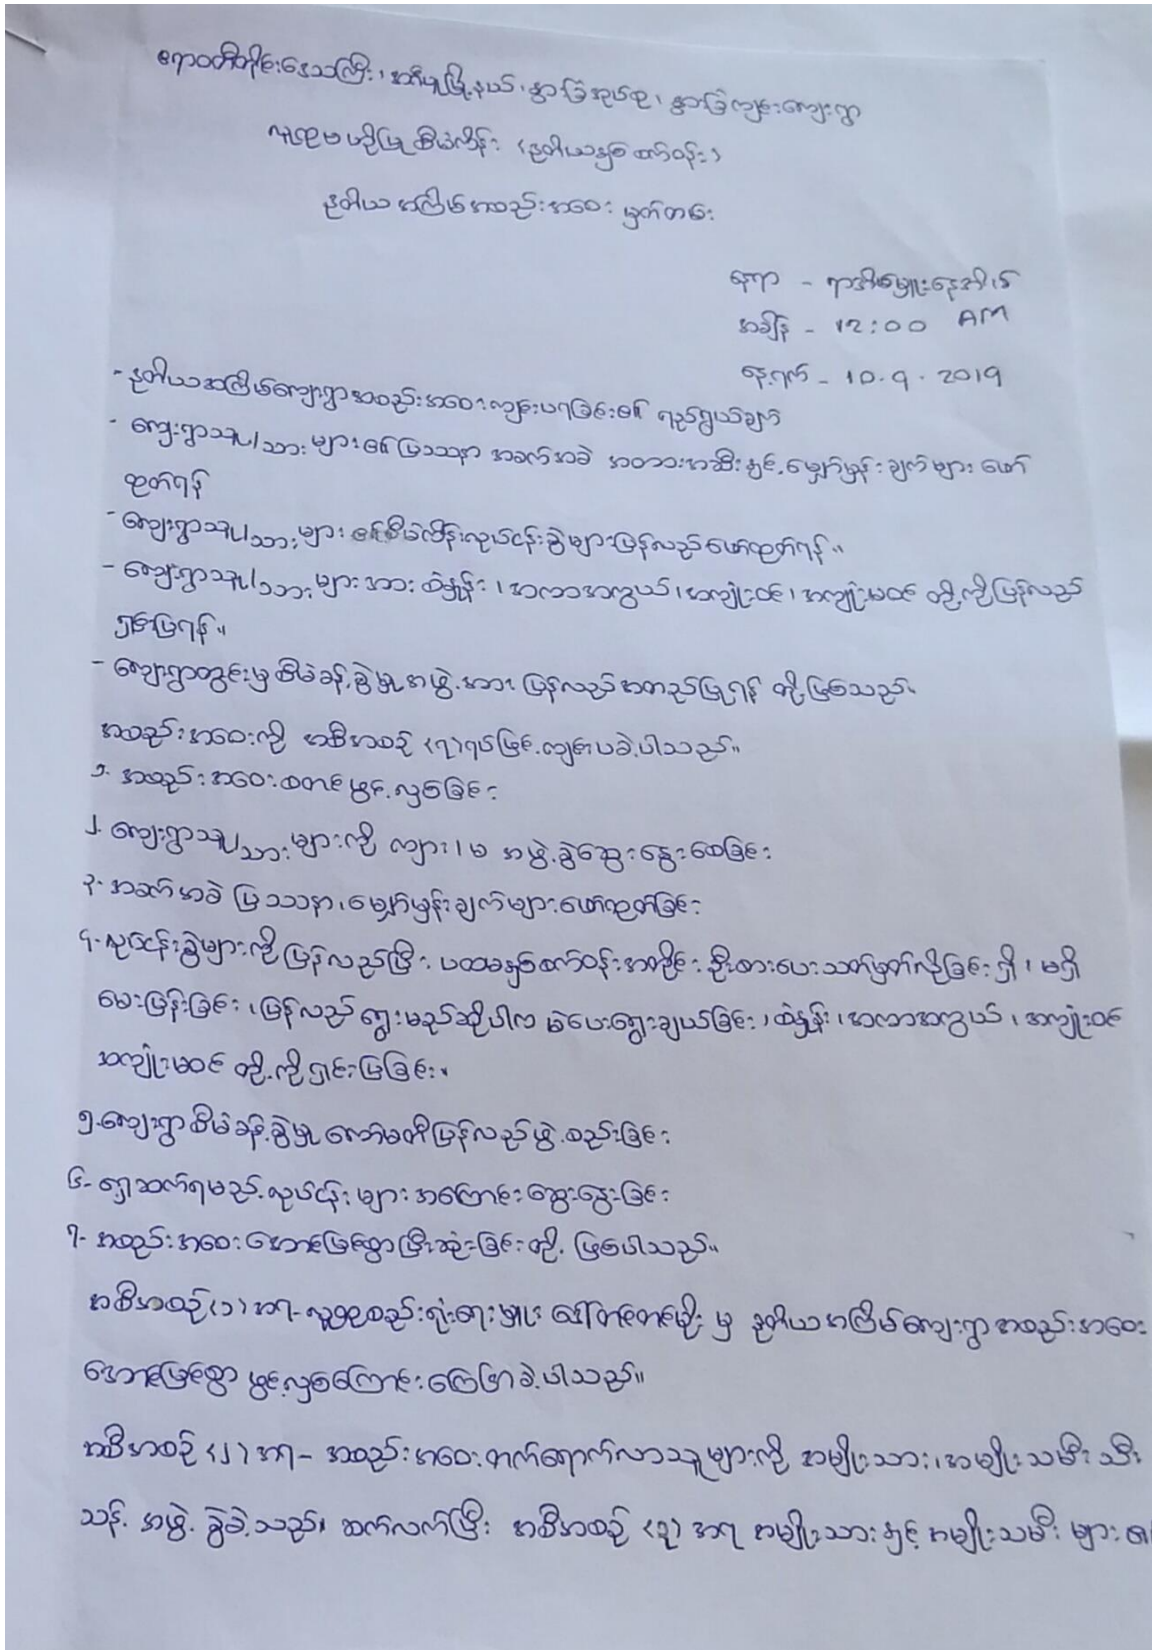 ဧရာဝတီတိုင်းဒေသကြီး၊ အင်္ဂပူမြို့နယ်၊ နွားခြံအုပ်စု၊ နွားခြံကျင်းကျေးရွာ
လူထုဗဟိုပြုစီမံကိန်း (ဒုတိယနှစ်စက်ဝန်း)
ဒုတိယအကြိမ်အစည်းအဝေး မှတ်တမ်း
နေရာ - ရာအိမ်မှူးနေအိမ်
အချိန် - 12:00 AM
နေ့ရက် - 10.9.2019
- ဒုတိယအကြိမ်ကျေးရွာအစည်းအဝေးကျင်းပရခြင်း၏ ရည်ရွယ်ချက်
- ကျေးရွာသူ/သားများ၏ပြဿနာ အခက်အခဲ အတားအဆီးနှင့် မျှော်မှန်းချက်များ ဖော်
ထုတ်ရန်
- ကျေးရွာသူ/သားများ ၏စီမံကိန်းလုပ်ငန်းခွဲများပြန်လည်ဖော်ထုတ်ရန်။
- ကျေးရွာသူ/သားများအား စံနှုန်း၊ အကာအကွယ်၊ အကျုံးဝင်၊ အကျုံးမဝင် တို့ကိုပြန်လည်
ရှင်းပြရန်။
- ကျေးရွာတွင်းမှစီမံခန့်ခွဲမှုအဖွဲ့အား ပြန်လည်အတည်ပြုရန် တို့ဖြစ်သည်။
အစည်းအဝေးကို အစီအစဉ် (၇)ရပ်ဖြင့်ကျင်းပခဲ့ပါသည်။
၁. အစည်းအဝေးစတင်ဖွင့်လှစ်ခြင်း
၂. ကျေးရွာသူ/သားများကို ကျား၊မ အဖွဲ့ခွဲဆွေးနွေးစေခြင်း
၃. အခက်အခဲ ပြဿနာ၊ မျှော်မှန်းချက်များဖော်ထုတ်ခြင်း
၄. လုပ်ငန်းခွဲများကိုပြန်လည်ပြီး ပထမနှစ်စက်ဝန်းအတိုင်း ဦးစားပေးသတ်မှတ်လိုခြင်း ရှိ၊ မရှိ
မေးမြန်းခြင်း၊ ပြန်လည်ရွေးမည်ဆိုပါက မဲပေးရွေးချယ်ခြင်း၊ စံနှုန်း၊ အကာအကွယ်၊ အကျုံးဝင်
အကျုံးမဝင် တို့ကိုရှင်းပြခြင်း။
၅. ကျေးရွာစီမံခန့်ခွဲမှု ကော်မတီပြန်လည်ဖွဲ့စည်းခြင်း
၆. ရှေ့ဆက်ရမည့်လုပ်ငန်းများအကြောင်းဆွေးနွေးခြင်း
၇. အစည်းအဝေးအောင်မြင်စွာပြီးဆုံးခြင်းတို့ ဖြစ်ပါသည်။
အစီအစဉ်(၁)အရ- လူထုစည်းရုံးရေးမှူး မှ ဒုတိယအကြိမ်ကျေးရွာအစည်းအဝေး
အောင်မြင်စွာ ဖွင့်လှစ်ကြောင်းကြေငြာခဲ့ပါသည်။
အစီအစဉ် (၂) အရ- အစည်းအဝေးတက်ရောက်လာသူများကို အမျိုးသား၊ အမျိုးသမီး သီး
သန့် အဖွဲ့ ခွဲခဲ့သည်။ ဆက်လက်ပြီး အစီအစဉ် (၃) အရ အမျိုးသားနှင့် အမျိုးသမီး များ၏